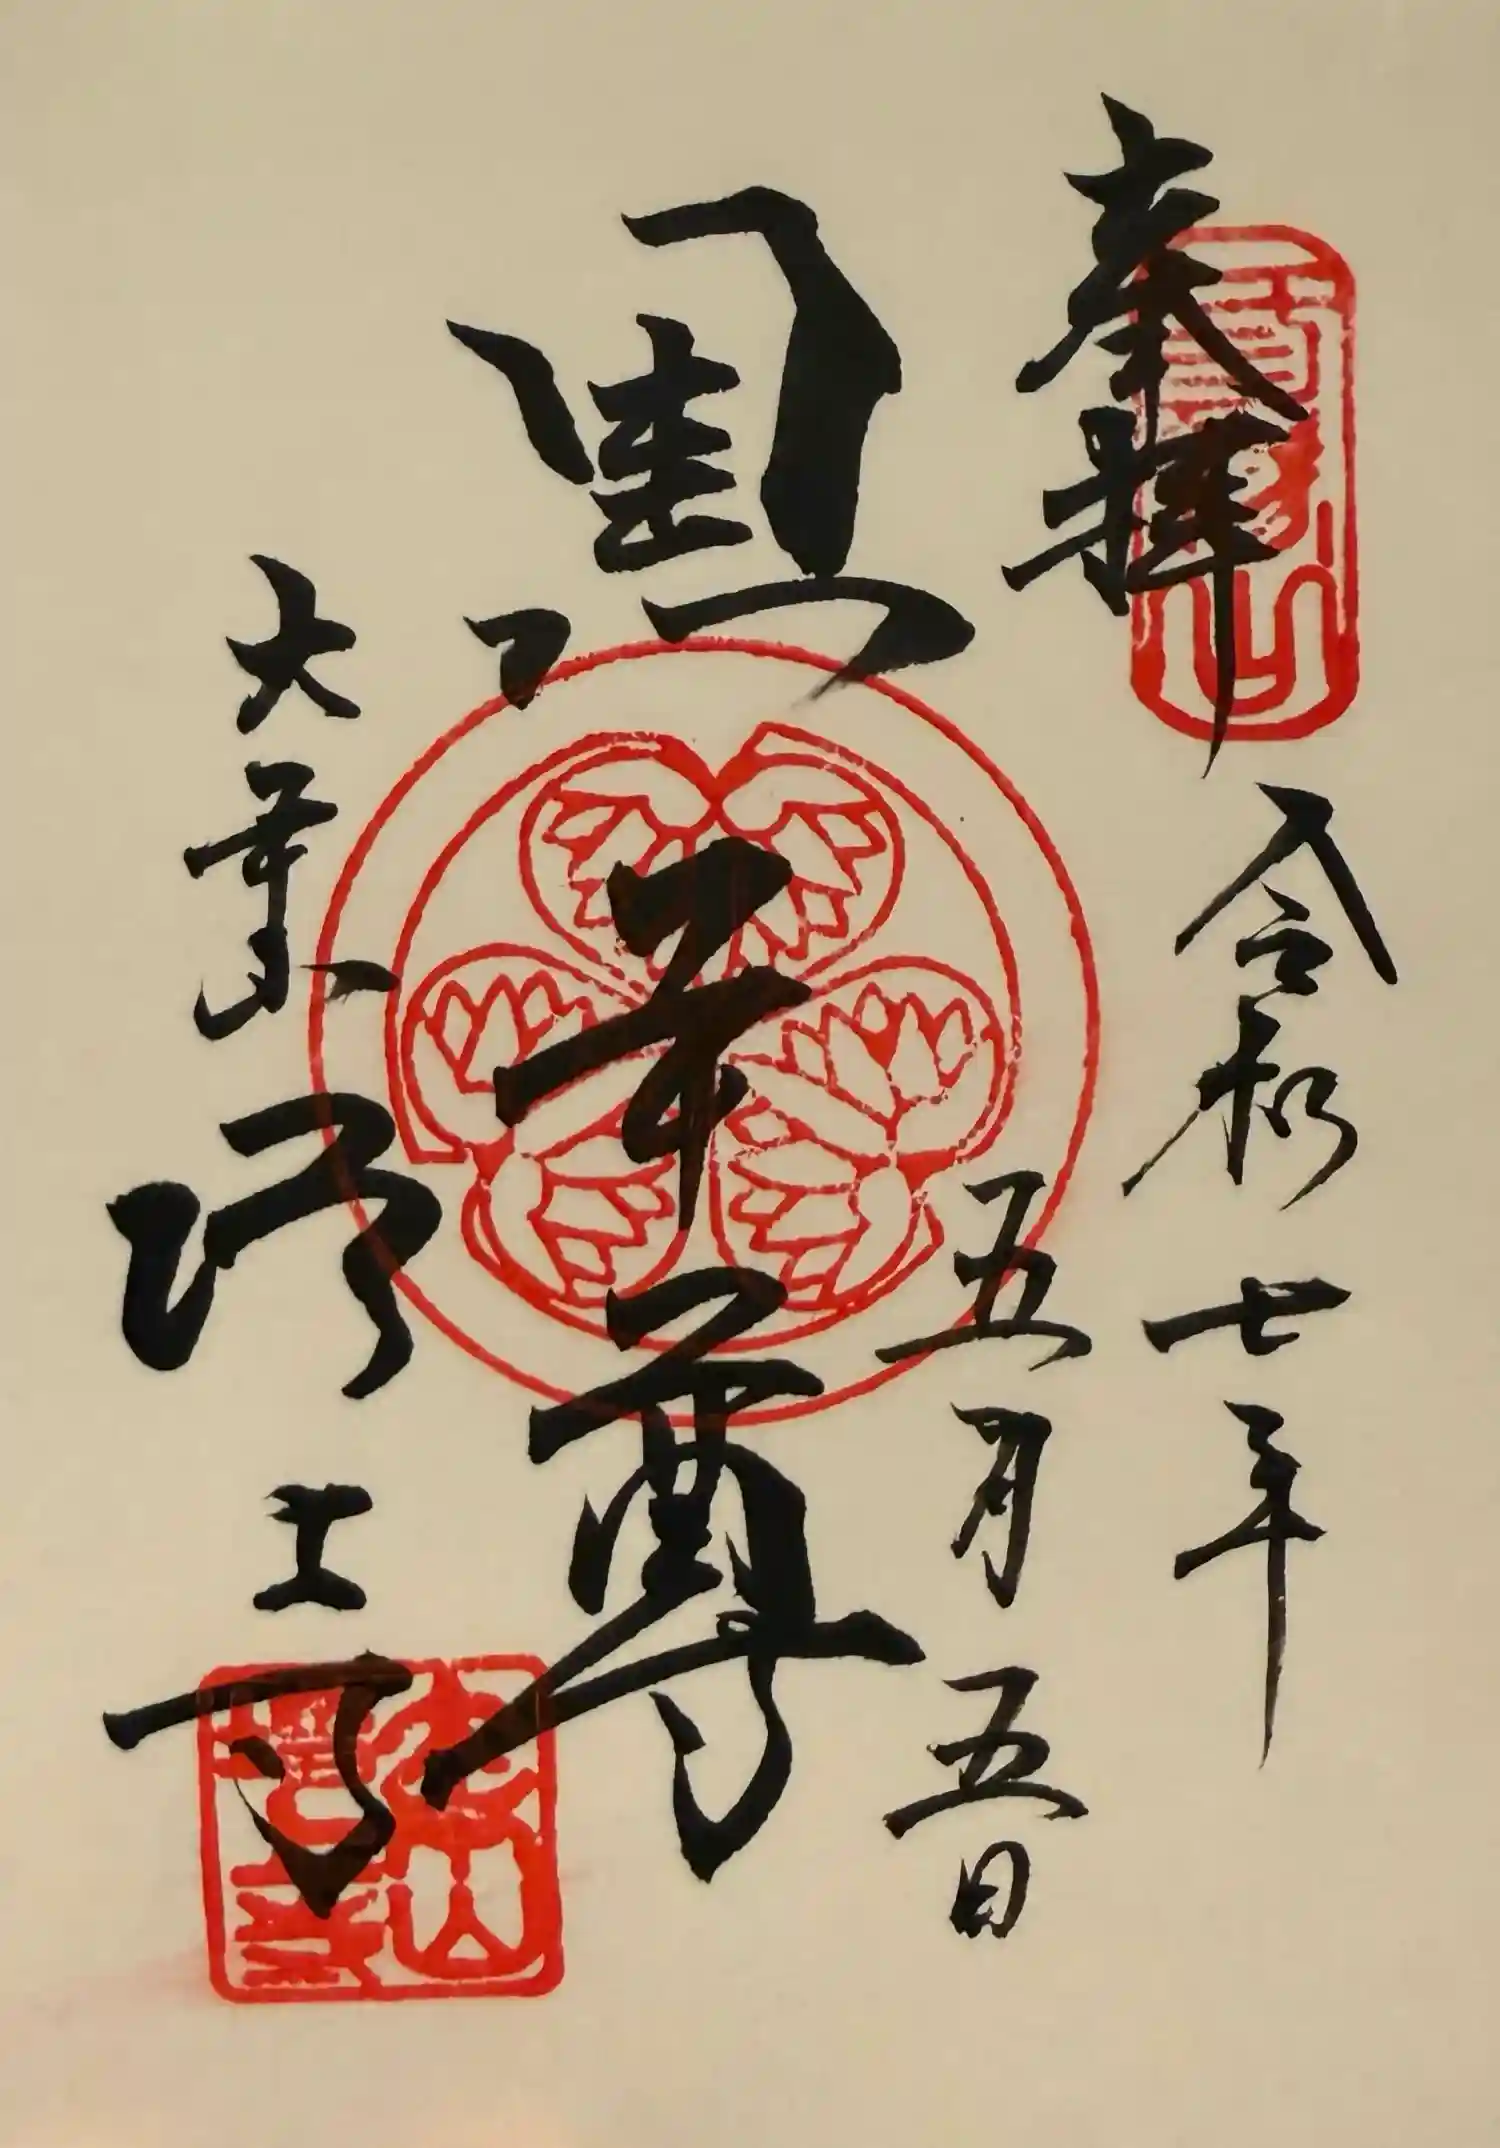 奉拝
令和七年
五月五日
黒本尊
大本山
増上寺